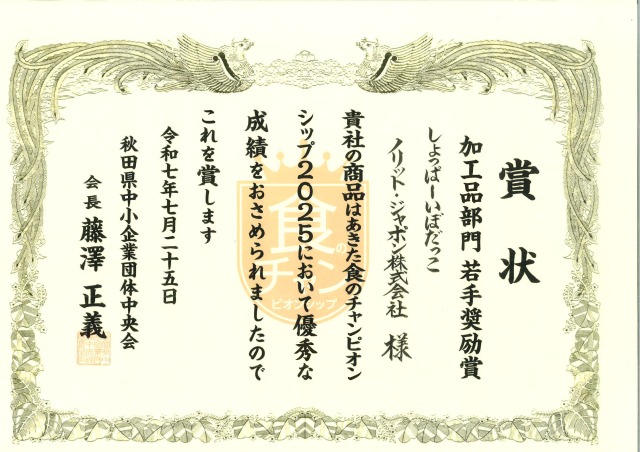 賞状
加工品部門 若手奨励賞
しょっぱーいぼだっこ
ノリット・ジャポン株式会社 様
貴社の商品はあきた食のチャンピオン
シップ2025において優秀な
成績をおさめられましたので
これを賞します
令和七年七月二十五日
秋田県中小企業団体中央会
会長 藤澤正義
食の
チャン
ピオンシップ